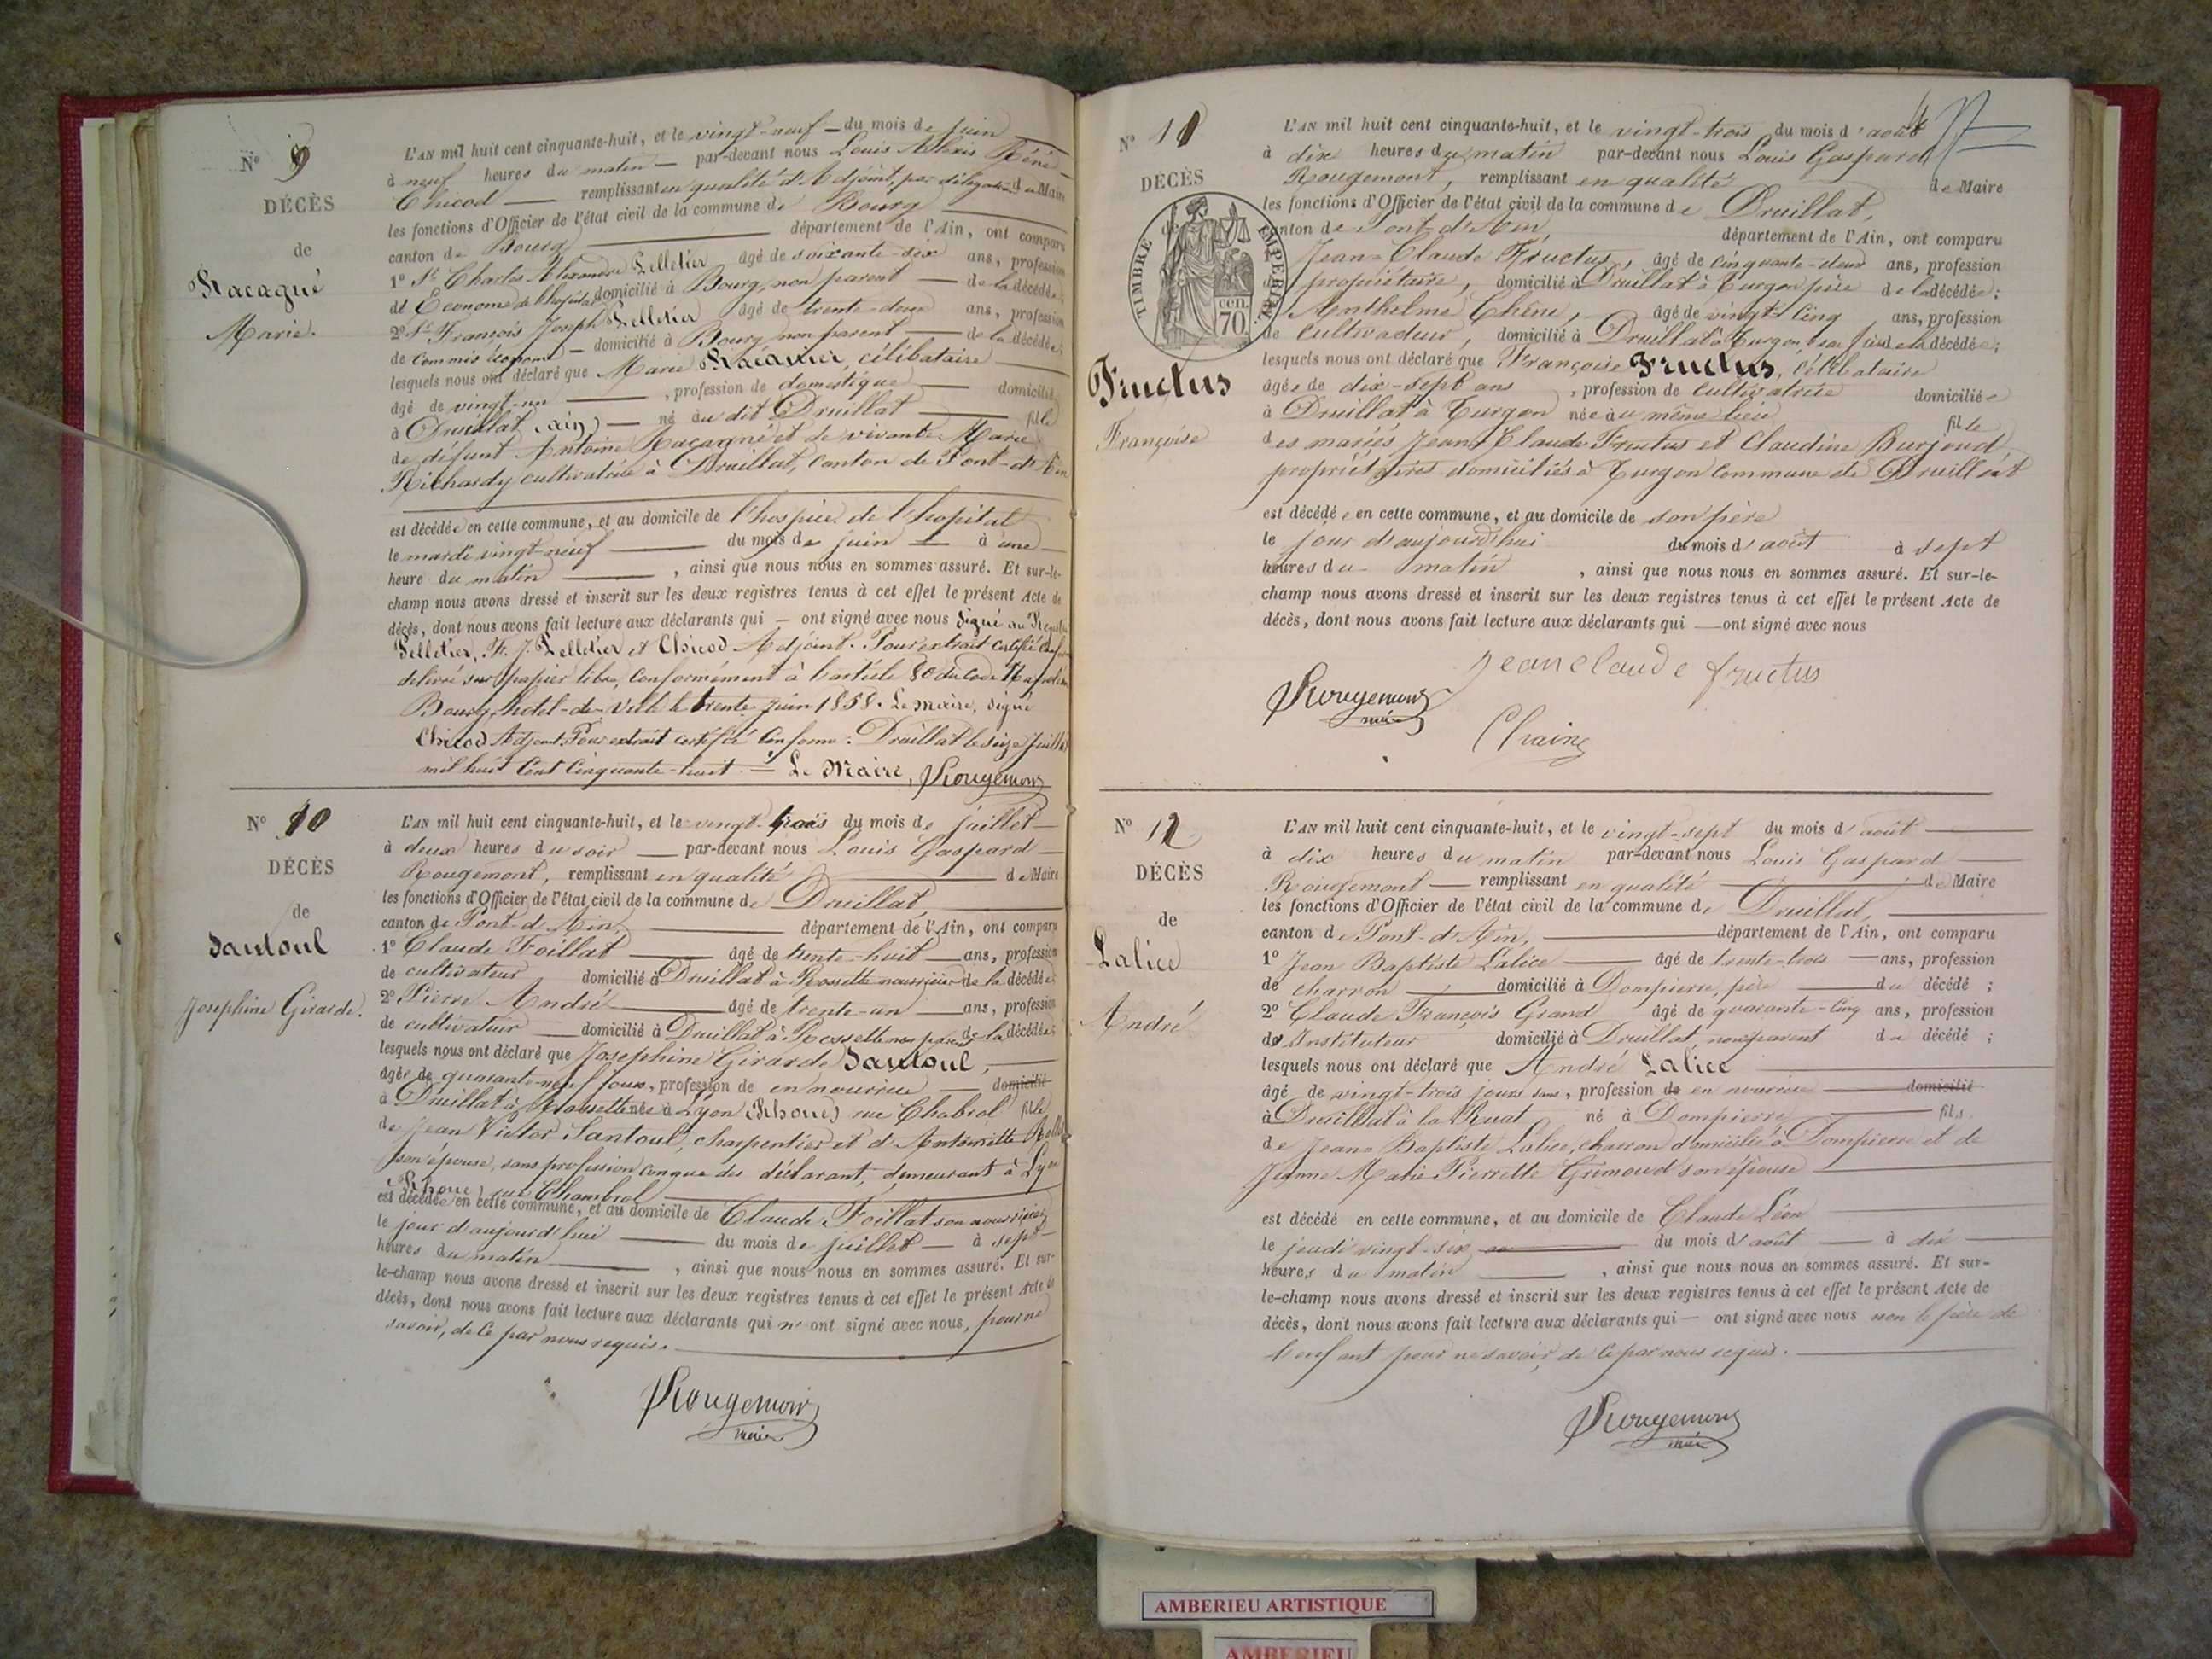 N° 9
DÉCÈS
de
Racagné
Marie.
L'AN mil huit cent cinquante-huit, et le vingt-neuf — du mois de juin
à neuf heures du matin — par-devant nous Louis Alexis Réné
Chicod — remplissant en qualité d'Adjoint, par délégation du Maire
les fonctions d'Officier de l'état civil de la commune de Bourg
canton de Bourg — département de l'Ain, ont comparu
1° Sr. Charles Alexandre Pelletier âgé de soixante-dix ans, profession
de Econome de l'hopital domicilié à Bourg, non parent — de la décédée;
2° Sr. François Joseph Pelletier âgé de trente-deux ans, profession
de commis économe — domicilié à Bourg non parent — de la décédée;
lesquels nous ont déclaré que Marie Racagnié, célibataire
âgé de vingt-un —, profession de domestique — domicilié
à Druillat (ain) — né au dit Druillat — fille
de défunt Antoine Racagné et de vivante Marie
Richardy cultivatrice à Druillat, canton de Pont-d'Ain
est décédée en cette commune, et au domicile de l'hospice de l'hopital
le mardi vingt-neuf — du mois de juin — à une
heure du matin —, ainsi que nous nous en sommes assuré. Et sur-le-
champ nous avons dressé et inscrit sur les deux registres tenus à cet effet le présent Acte de
décès, dont nous avons fait lecture aux déclarants qui — ont signé avec nous Signé au Registre
Pelletier, F. J. Pelletier et Chicod Adjoint. Pour extrait certifié conforme
délivré sur papier libre, conformément à l'article 80 du Code Napoléon
Bourg, hotel-de-ville le trente juin 1858. Le maire, signé
Chicod Adjoint. Pour extrait certifié conforme. Druillat le seize juillet
mil huit cent cinquante-huit. — Le Maire, Rougemont
N° 10
DÉCÈS
de
Santoul
Josephine Girarde.
L'AN mil huit cent cinquante-huit, et le vingt-trois du mois de juillet —
à deux heures du soir — par-devant nous Louis Gaspard —
Rougemont, remplissant en qualité — de Maire
les fonctions d'Officier de l'état civil de la commune de Druillat
canton de Pont-d'Ain, — département de l'Ain, ont comparu
1° Claude Foillat — âgé de trente-huit — ans, profession
de cultivateur domicilié à Druillat à Rossette nourricier de la décédée;
2° Pierre André — âgé de trente-un — ans, profession
de cultivateur — domicilié à Druillat à Rossette non parent de la décédée;
lesquels nous ont déclaré que Josephine Girarde Santoul,
âgée de quarante-neuf jours, profession de en nourrice — domicilié
à Druillat à Rossette née à Lyon (Rhone) rue Chabrol fille
de Jean Victor Santoul, charpentier et d'Antoinette
son épouse, sans profession connue des déclarant, demeurant à Lyon
(Rhone) rue Chambrol
est décédée en cette commune, et au domicile de Claude Foillat son nourricier
le jour d'aujourd'hui — du mois de juillet — à sept —
heures du matin —, ainsi que nous nous en sommes assuré. Et sur-
le-champ nous avons dressé et inscrit sur les deux registres tenus à cet effet le présent Acte de
décès, dont nous avons fait lecture aux déclarants qui n'ont signé avec nous, pour ne
savoir, de ce par nous requis.
Rougemont
maire
N° 11
DÉCÈS
de
TIMBRE IMPÉRIAL
cen. 70
Fructus
Françoise
L'AN mil huit cent cinquante-huit, et le vingt-trois du mois d'août
à dix heures du matin par-devant nous Louis Gaspard
Rougemont, remplissant en qualité de Maire
les fonctions d'Officier de l'état civil de la commune de Druillat,
canton de Pont-d'Ain, département de l'Ain, ont comparu
Jean-Claude Fructus, âgé de cinquante-deux ans, profession
de propriétaire, domicilié à Druillat à Turgon père de la décédée;
Anthelme Chêne, âgé de vingt-cinq ans, profession
de cultivateur, domicilié à Druillat à Turgon, de la décédée;
lesquels nous ont déclaré que Françoise Fructus, célibataire
âgée de dix-sept ans, profession de cultivatrice domiciliée
à Druillat à Turgon née au même lieu fille
des mariés Jean-Claude Fructus et Claudine Burjoud,
propriétaires domiciliés à Turgon commune de Druillat
est décédée en cette commune, et au domicile de son père
le jour d'aujourd'hui du mois d'août à sept
heures du matin, ainsi que nous nous en sommes assuré. Et sur-le-
champ nous avons dressé et inscrit sur les deux registres tenus à cet effet le présent Acte de
décès, dont nous avons fait lecture aux déclarants qui — ont signé avec nous
jean claude fructus
Rougemont
maire
N° 12
DÉCÈS
de
Lalice
André
L'AN mil huit cent cinquante-huit, et le vingt-sept du mois d'août —
à dix heures du matin par-devant nous Louis Gaspard —
Rougemont — remplissant en qualité — de Maire
les fonctions d'Officier de l'état civil de la commune de Druillat,
canton de Pont-d'Ain, — département de l'Ain, ont comparu
1° Jean Baptiste Lalice — âgé de trente-trois — ans, profession
de charron — domicilié à Dompierre, père — du décédé;
2° Claude François Grand âgé de quarante-cinq ans, profession
d'Instituteur domicilié à Druillat, non parent du décédé;
lesquels nous ont déclaré que André Lalice
âgé de vingt-trois jours ans, profession de en nourrice — domicilié
à Druillat à la Ruat né à Dompierre — fils
de Jean-Baptiste Lalice, charron domicilié à Dompierre et de
Jeanne Marie Pierrette Grimoud son épouse
est décédé en cette commune, et au domicile de Claude Léon
le jeudi vingt-six — du mois d'août — à dix —
heures du matin —, ainsi que nous nous en sommes assuré. Et sur-
le-champ nous avons dressé et inscrit sur les deux registres tenus à cet effet le présent Acte de
décès, dont nous avons fait lecture aux déclarants qui — ont signé avec nous non le père de
l'enfant pour ne savoir, de ce par nous requis.
Rougemont
maire
AMBERIEU ARTISTIQUE
AMBERIEU